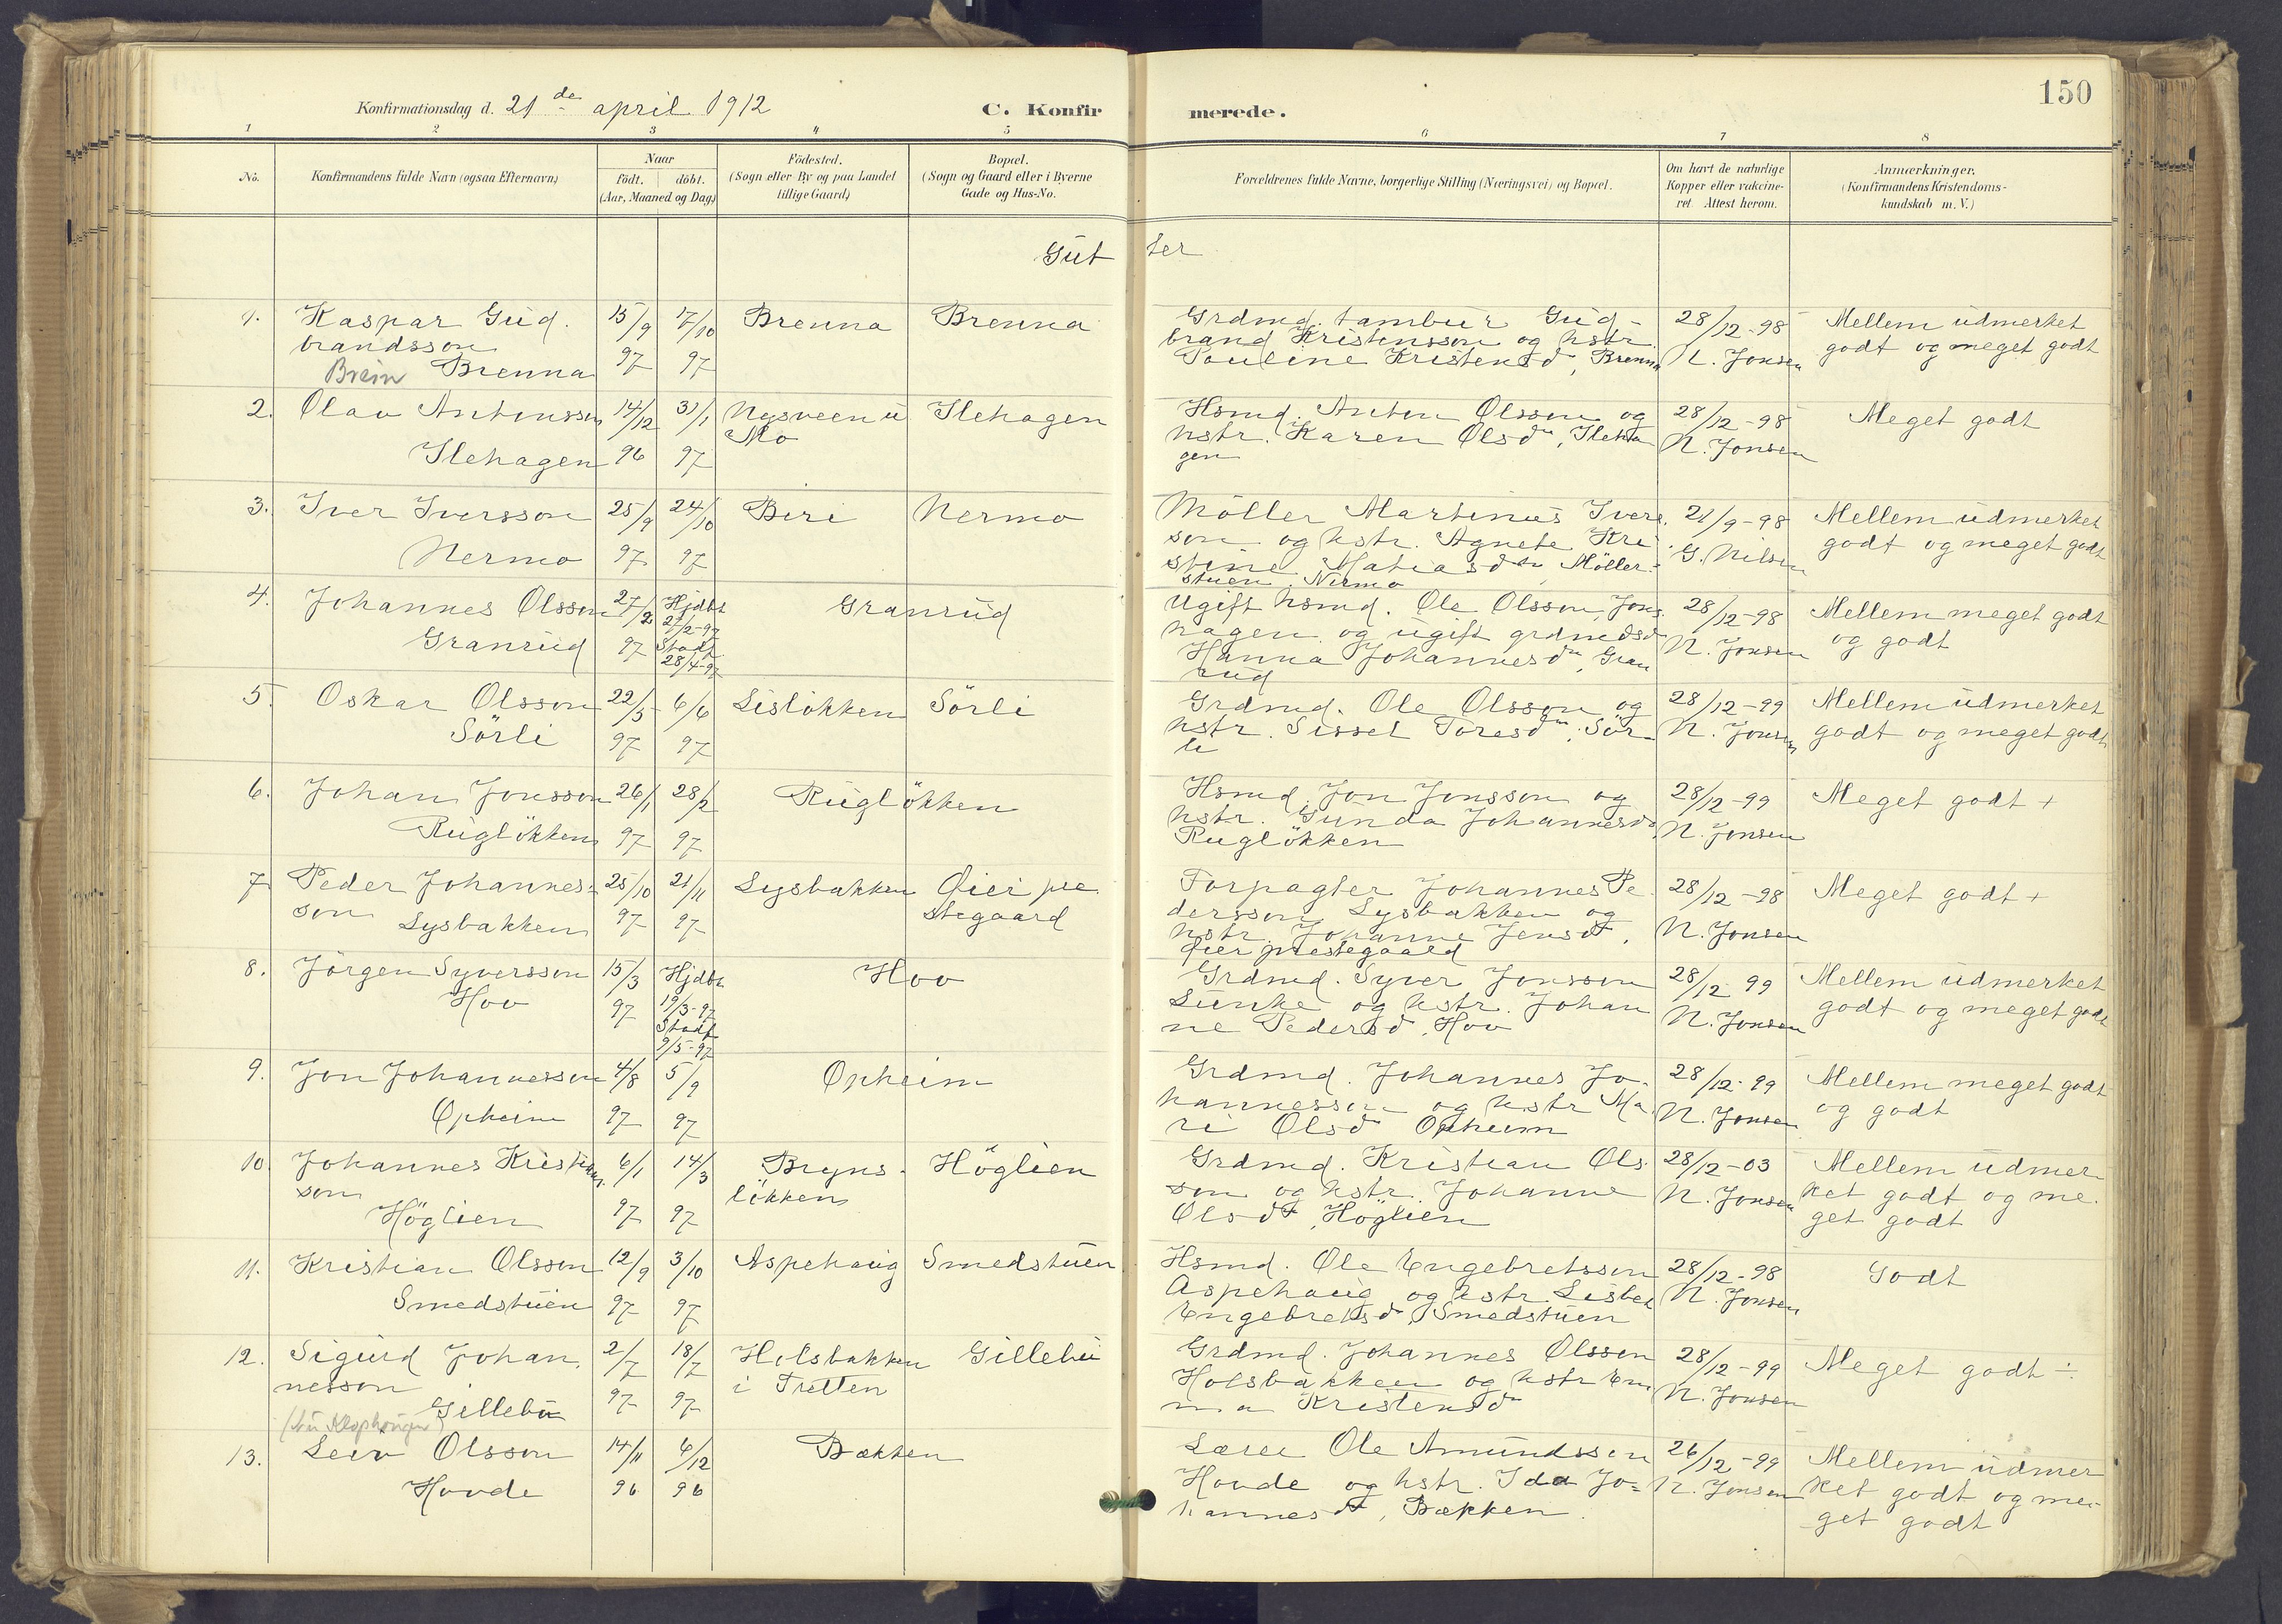 150
Konfirmationsdag d. 21de april 1912 C. Konfir merede.
1 2 3 4 5 6 7 8
No. Konfirmandens fulde Navn (ogsaa Efternavn) Naar födt. döbt. (Aar, Maaned og Dag) Födested. (Sogn eller By og paa Landet tillige Gaard) Bopæl. (Sogn og Gaard eller i Byerne Gade og Hus-No. Forældrenes fulde Navne, borgerlige Stilling (Næringsvei) og Bopæl. Om havt de naturlige Kopper eller vakcineret. Attest herom. Anmærkninger. (Konfirmandens Kristendomskundskab m. V.)
Gut ter
1. Kaspar Gud. 15/9 7/10 Brenna Brenna Grdmd. tambur Gud- 28/12-98 Mellem udmerket
brandsson brand Kristensson og hstr. godt og meget godt
Brein Brenna 97 97 Pouline Kristensd, Brenna N. Jonsen
2. Olav Antonsson 14/12 31/1 Nysveen u Ilehagen Hsmd. Anton Olsson og 28/12-98 Meget godt
Mo hstr. Karen Olsdtr, Ileha N. Jonsen
Ilehagen 96 97 gen
3. Iver Iversson 25/9 24/10 Biri Nermo Möller Martinus Ivers. 21/9-98 Mellem udmerket
son og hstr. Agnete Kri G. Nilsen godt og meget godt
Nermo 97 97 stine Matiasdtr Möller-
stuen, Nermo
4. Johannes Olsson 27/2 Hjdbt Granrud Ugift hsmd. Ole Olsson, Jons 28/12-98 Mellem meget godt
27/2-97 hagen og ugift grdmdsd N. Jonsen og godt
Granrud 97 Stadf Hanna Johannesdtr, Gran
28/4-97 rud
5. Oskar Olsson 22/5 6/6 Lislökken Sörli Grdmd. Ole Olsson og 28/12-99 Mellem udmerket
Sörli 97 97 hstr. Sissel Toresdtr, Sör- N. Jonsen godt og meget godt
li
6. Johan Jonsson 26/1 28/2 Ruglökken Hsmd. Jon Jonsson og 28/12-99 Meget godt +
Ruglökken 97 97 hstr. Gunda Johannesd, N. Jonsen
Ruglökken
7. Peder Johannes- 25/10 21/11 Lysbakken Öier pre Forpagter Johannes Pe 28/12-98 Meget godt +
son stegaard dersson Lysbakken og
Lysbakken 97 97 hstr. Johanne Jensdt, N. Jonsen
Öier prestegaard
8. Jörgen Syversson 15/3 Hjdbt Hov Grdmd. Syver Jonsson 28/12 99 Mellem udmerket
Hov 97 19/3-97 Lunke og hstr. Johan N. Jonsen godt og meget godt
Stadf ne Pedersd, Hov
9/5-97
9. Jon Johannesson 4/8 5/9 Opheim Grdmd. Johannes Jo- 28/12-99 Mellem meget godt
hannesson og hstr Ma og godt
Opheim 97 97 ri Olsd Opheim N. Jonsen
10. Johannes Kristians 6/1 14/3 Bryns- Höglien Grdmd. Kristian Ols. 28/12-03 Mellem udmer
son lökken son og hstr. Johanne N. Jonsen ket godt og me-
Höglien 97 97 Olsdt, Höglien get godt
11. Kristian Olsson 12/9 3/10 Aspehaug Smedstuen Hsmd. Ole Engebretsson 28/12-98 Godt
Aspehaug og hstr. Lisbet N. Jonsen
Smedstuen 97 97 Engebretsd, Smedstuen
12. Sigurd Johan, 2/7 18/7 Holsbakken Gillebu Grdmd. Johannes Olsson 28/12-99 Meget godt ÷
nesson i Tretten Holsbakken og hstr Em N. Jonsen
Gillebu 97 97 ma Kristensd
13. Leiv Olsson 14/11 6/12 Bækken Lærer Ole Amundssen 26/12-99 Mellem udmer
Hovde 96 96 Hovde og hstr. Ida Jo= N. Jonsen ket godt og me-
hannesdt, Bækken. get godt